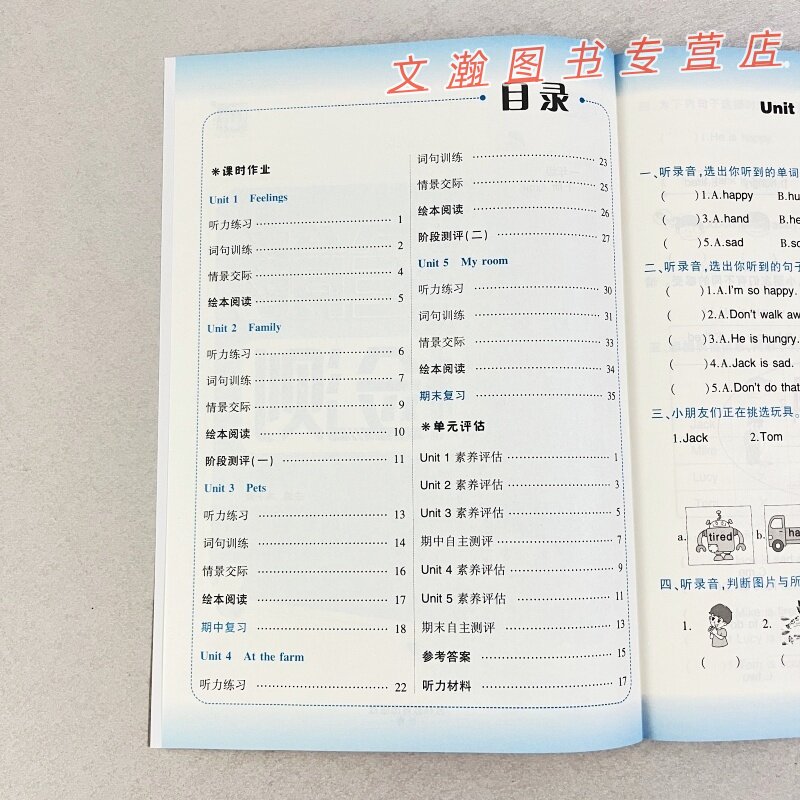 文瀚图书专营店
目录
※课时作业
Unit 1 Feelings
听力练习 1
词句训练 2
情景交际 4
绘本阅读 5
Unit 2 Family
听力练习 6
词句训练 7
情景交际 9
绘本阅读 10
阶段测评(一) 11
Unit 3 Pets
听力练习 13
词句训练 14
情景交际 16
绘本阅读 17
期中复习 18
Unit 4 At the farm
听力练习 22
词句训练 23
情景交际 25
绘本阅读 26
阶段测评(二) 27
Unit 5 My room
听力练习 30
词句训练 31
情景交际 33
绘本阅读 34
期末复习 35
※单元评估
Unit 1 素养评估 1
Unit 2 素养评估 3
Unit 3 素养评估 5
期中自主测评 7
Unit 4 素养评估 9
Unit 5 素养评估 11
期末自主测评 13
参考答案 15
听力材料 17
Unit
一、听录音,选出你听到的单词
( )1.A.happy B.hu
( )3.A.hand B.he
( )5.A.sad B.so
二、听录音,选出你听到的句子
( )1.A.I'm so happy.
( )2.A.Don't walk aw
( )3.A.He is hungry.
( )4.A.Jack is sad.
( )5.A.Don't do that
三、小朋友们正在挑选玩具。
1.Jack 2.Tom
a. tired b. ha
四、听录音,判断图片与所
1. 2.
( ) (